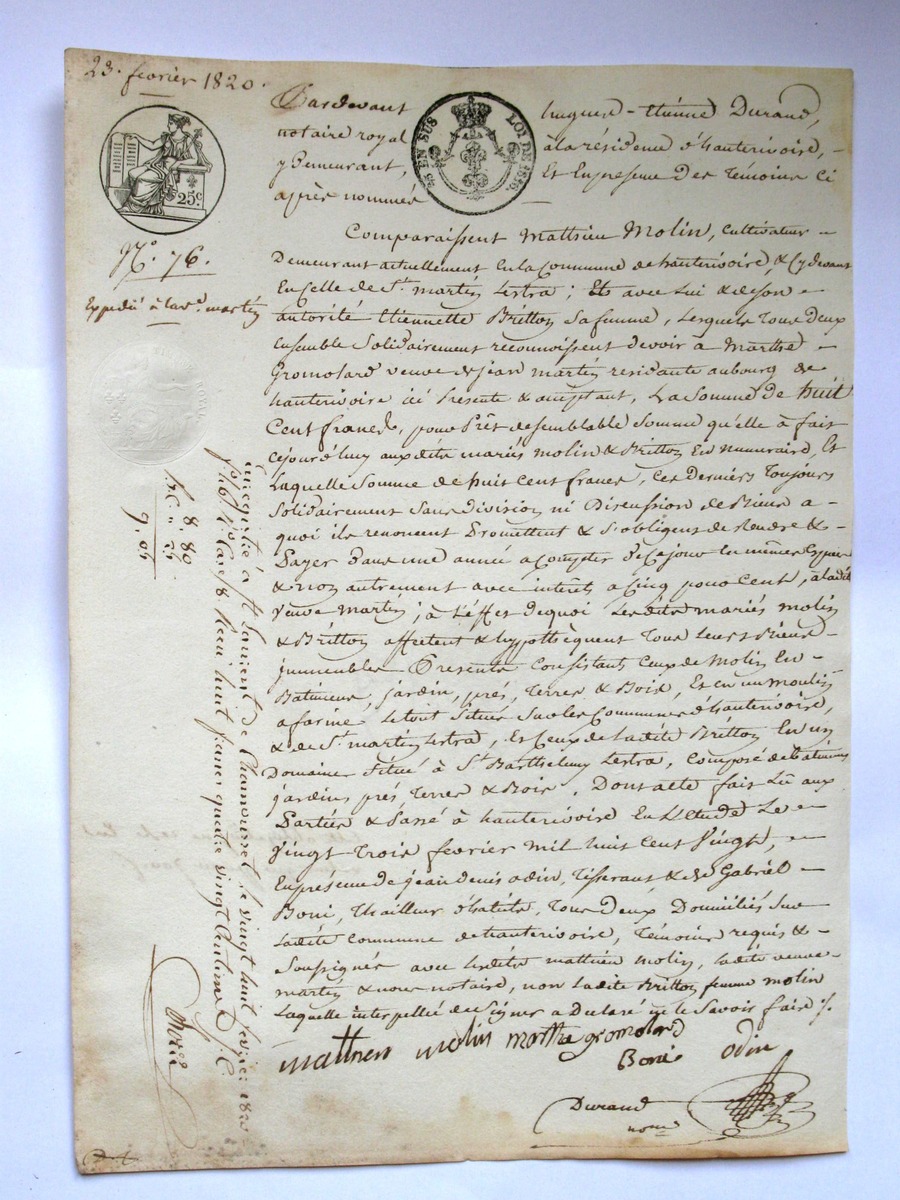 23. fevrier 1820.
25 EN SUS LOI DE 1816.
25c.
Pardevant hugues-Etienne Durand,
notaire royal à la résidence d'hauterivoire,
y demeurant, Et En presence Des Témoins Ci
après nommés
Comparaissent Matthieu Molin, cultivateur
Demeurant actuellement en la Commune de hauterivoire, & cy devant
En Celle de St. martin Lestra; Et avec Lui & de son
autorité Etiennette Britton sa femme, Lesquels Tous deux
Ensemble solidairement reconnoissent devoir a Marthe
Gromolard veuve de jean martin residante au bourg de
hauterivoire ici presente & acceptant, La Somme de huit
Cent francs, pour Prêt de semblable Somme qu'elle à fait
cejourd'huy auxdits mariés molin & Britton En Numeraire, Et
Laquelle Somme de huit Cent francs, Ces Derniers Toujours
Solidairement Sans division ni Discussion de Biens a
quoi ils renoncent Promettent & S'obligent de Rendre &
Payer Dans une année a Compter De Ce jour En mêmes Especes
& non autrement avec interêt a Cinq pour Cent, à ladite
Veuve Martin; à L'effet de quoi Lesdits mariés molin
& Britton affectent & hypothèquent Tous Leurs Biens
immeubles Presents Consistants Ceux de Molin En
Batiments, jardin, prés, Terres & Bois, Et en un Moulin
a farine Le tout Situé Sur les Communes d'hauterivoire,
& de St. martin Lestra, Et Ceux de Ladite Britton En un
Domaine Situé à St Barthelemy Lestra, Composé de batiments
jardins prés, Terres & Bois. Dont acte fait Lû aux
Parties & Passé à hauterivoire En L'Etude Le
Vingt Trois fevrier Mil huit Cent Vingt,
En présence de jean denis odin, Tisserant & de Gabriel
Boni, Thailleur d'habits, Tous Deux Domiciliés Sur
Ladite Commune de hauterivoire, Témoins requis &
Soussignés avec Ledit matthieu molin, Ladite veuve
martin & nous notaire, non Ladite Britton femme molin
Laquelle interpellée de Signer a Declaré ne le Savoir faire
matthieu molin marthe gromolard
Boni odin
Durand
nore
No. 76.
Expedié à la ve. martin
8. 80
9. 05
Enregistré à St Laurent de Chamousset le vingt huit fevrier 1820
huit francs quatre vingt Centimes